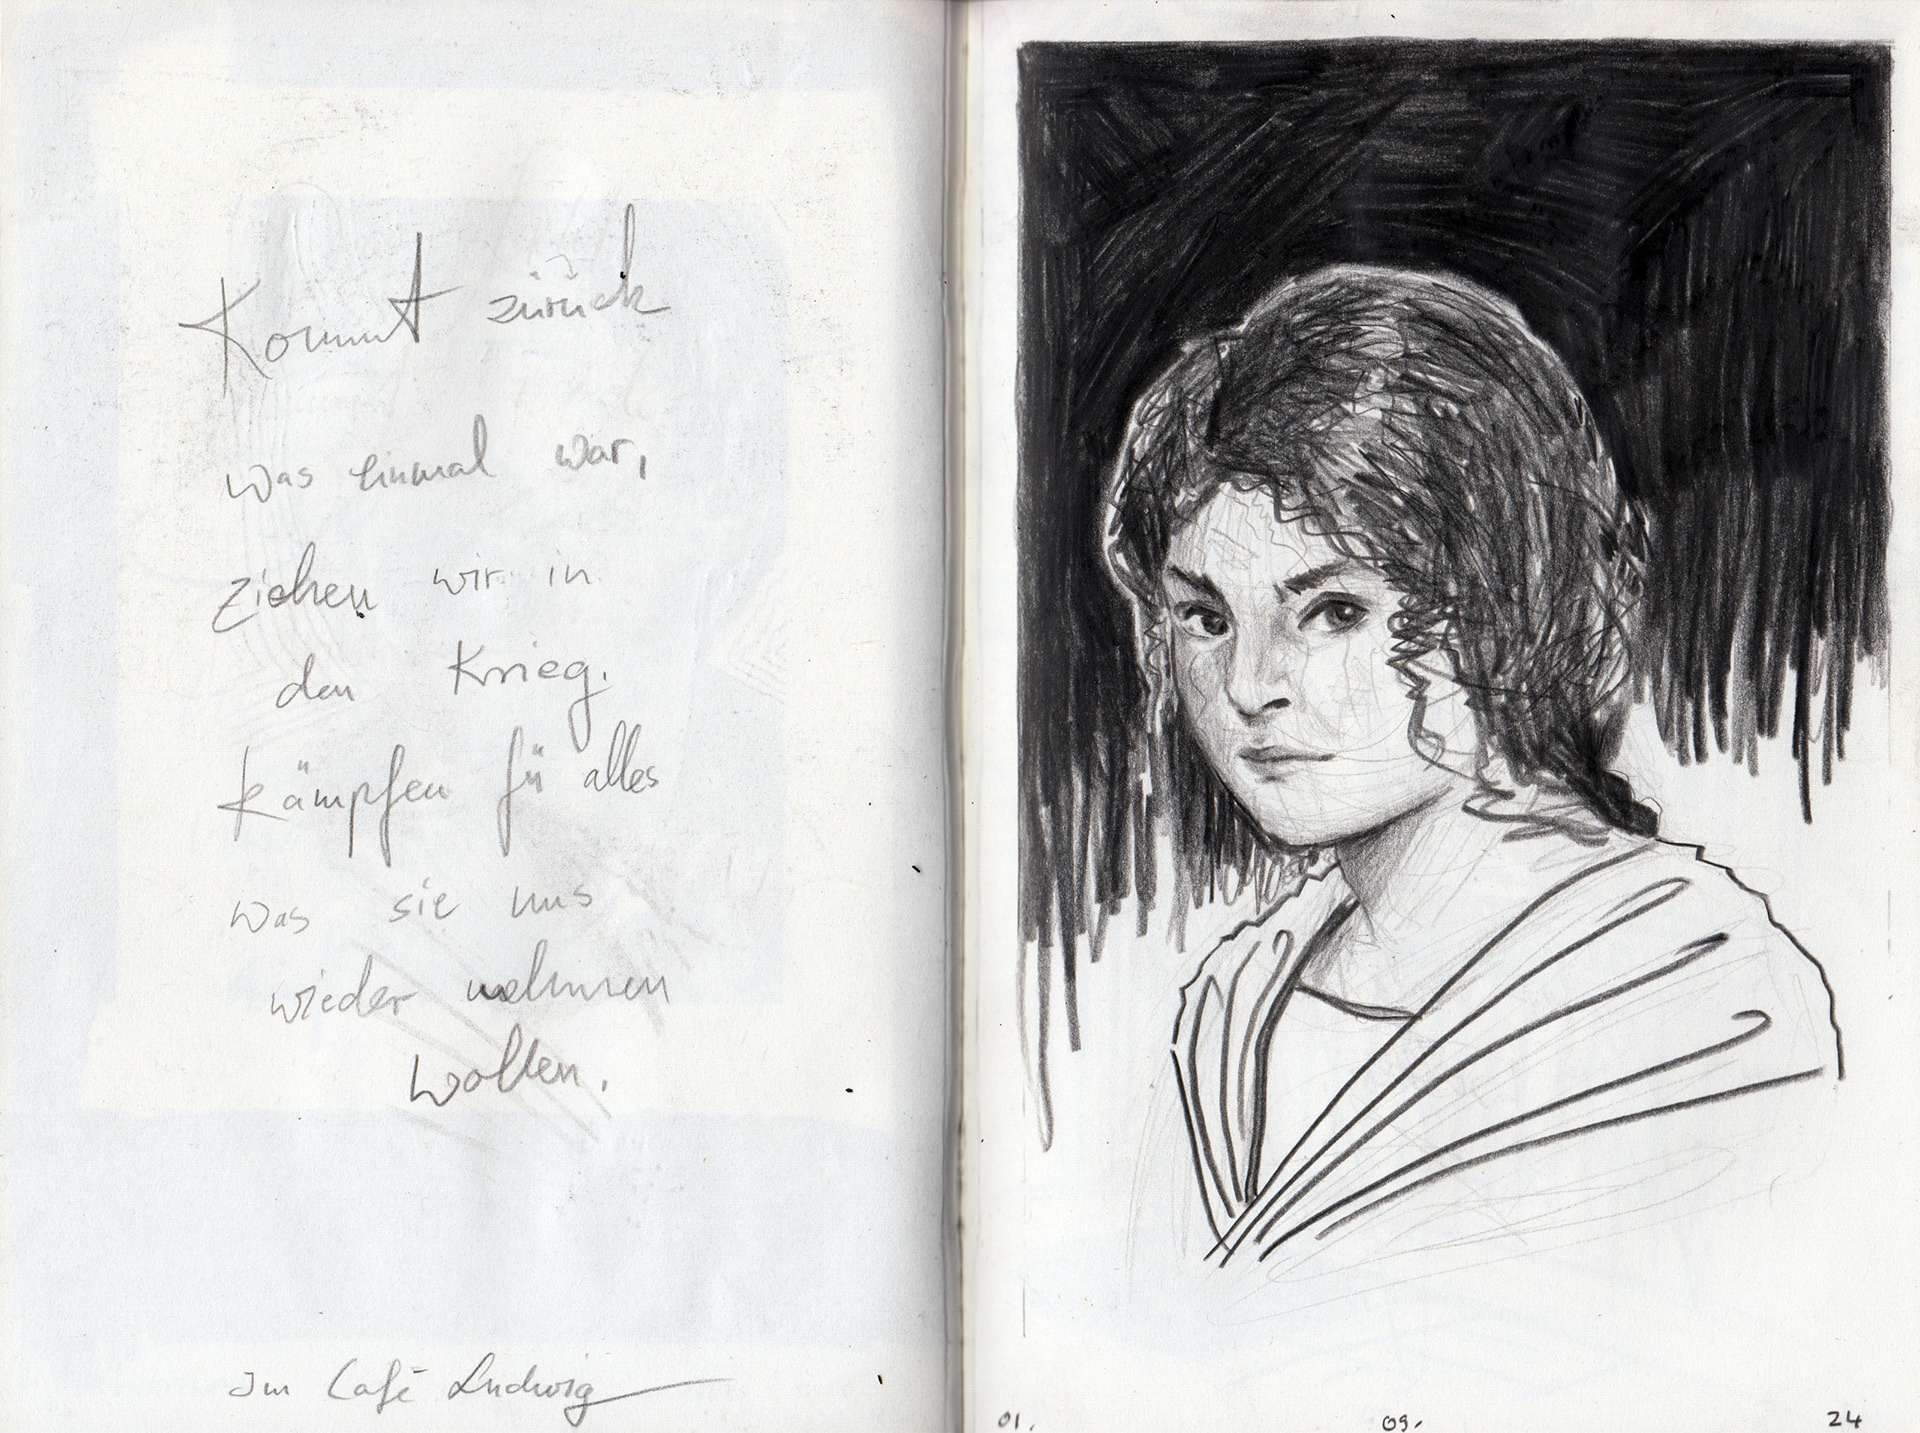 Kommt zurück
was einmal war,
ziehen wir in
den Krieg.
Kämpfen fü alles
was sie uns
wieder nehmen
wollen.
Im Café Ludwig
01. 09. 24